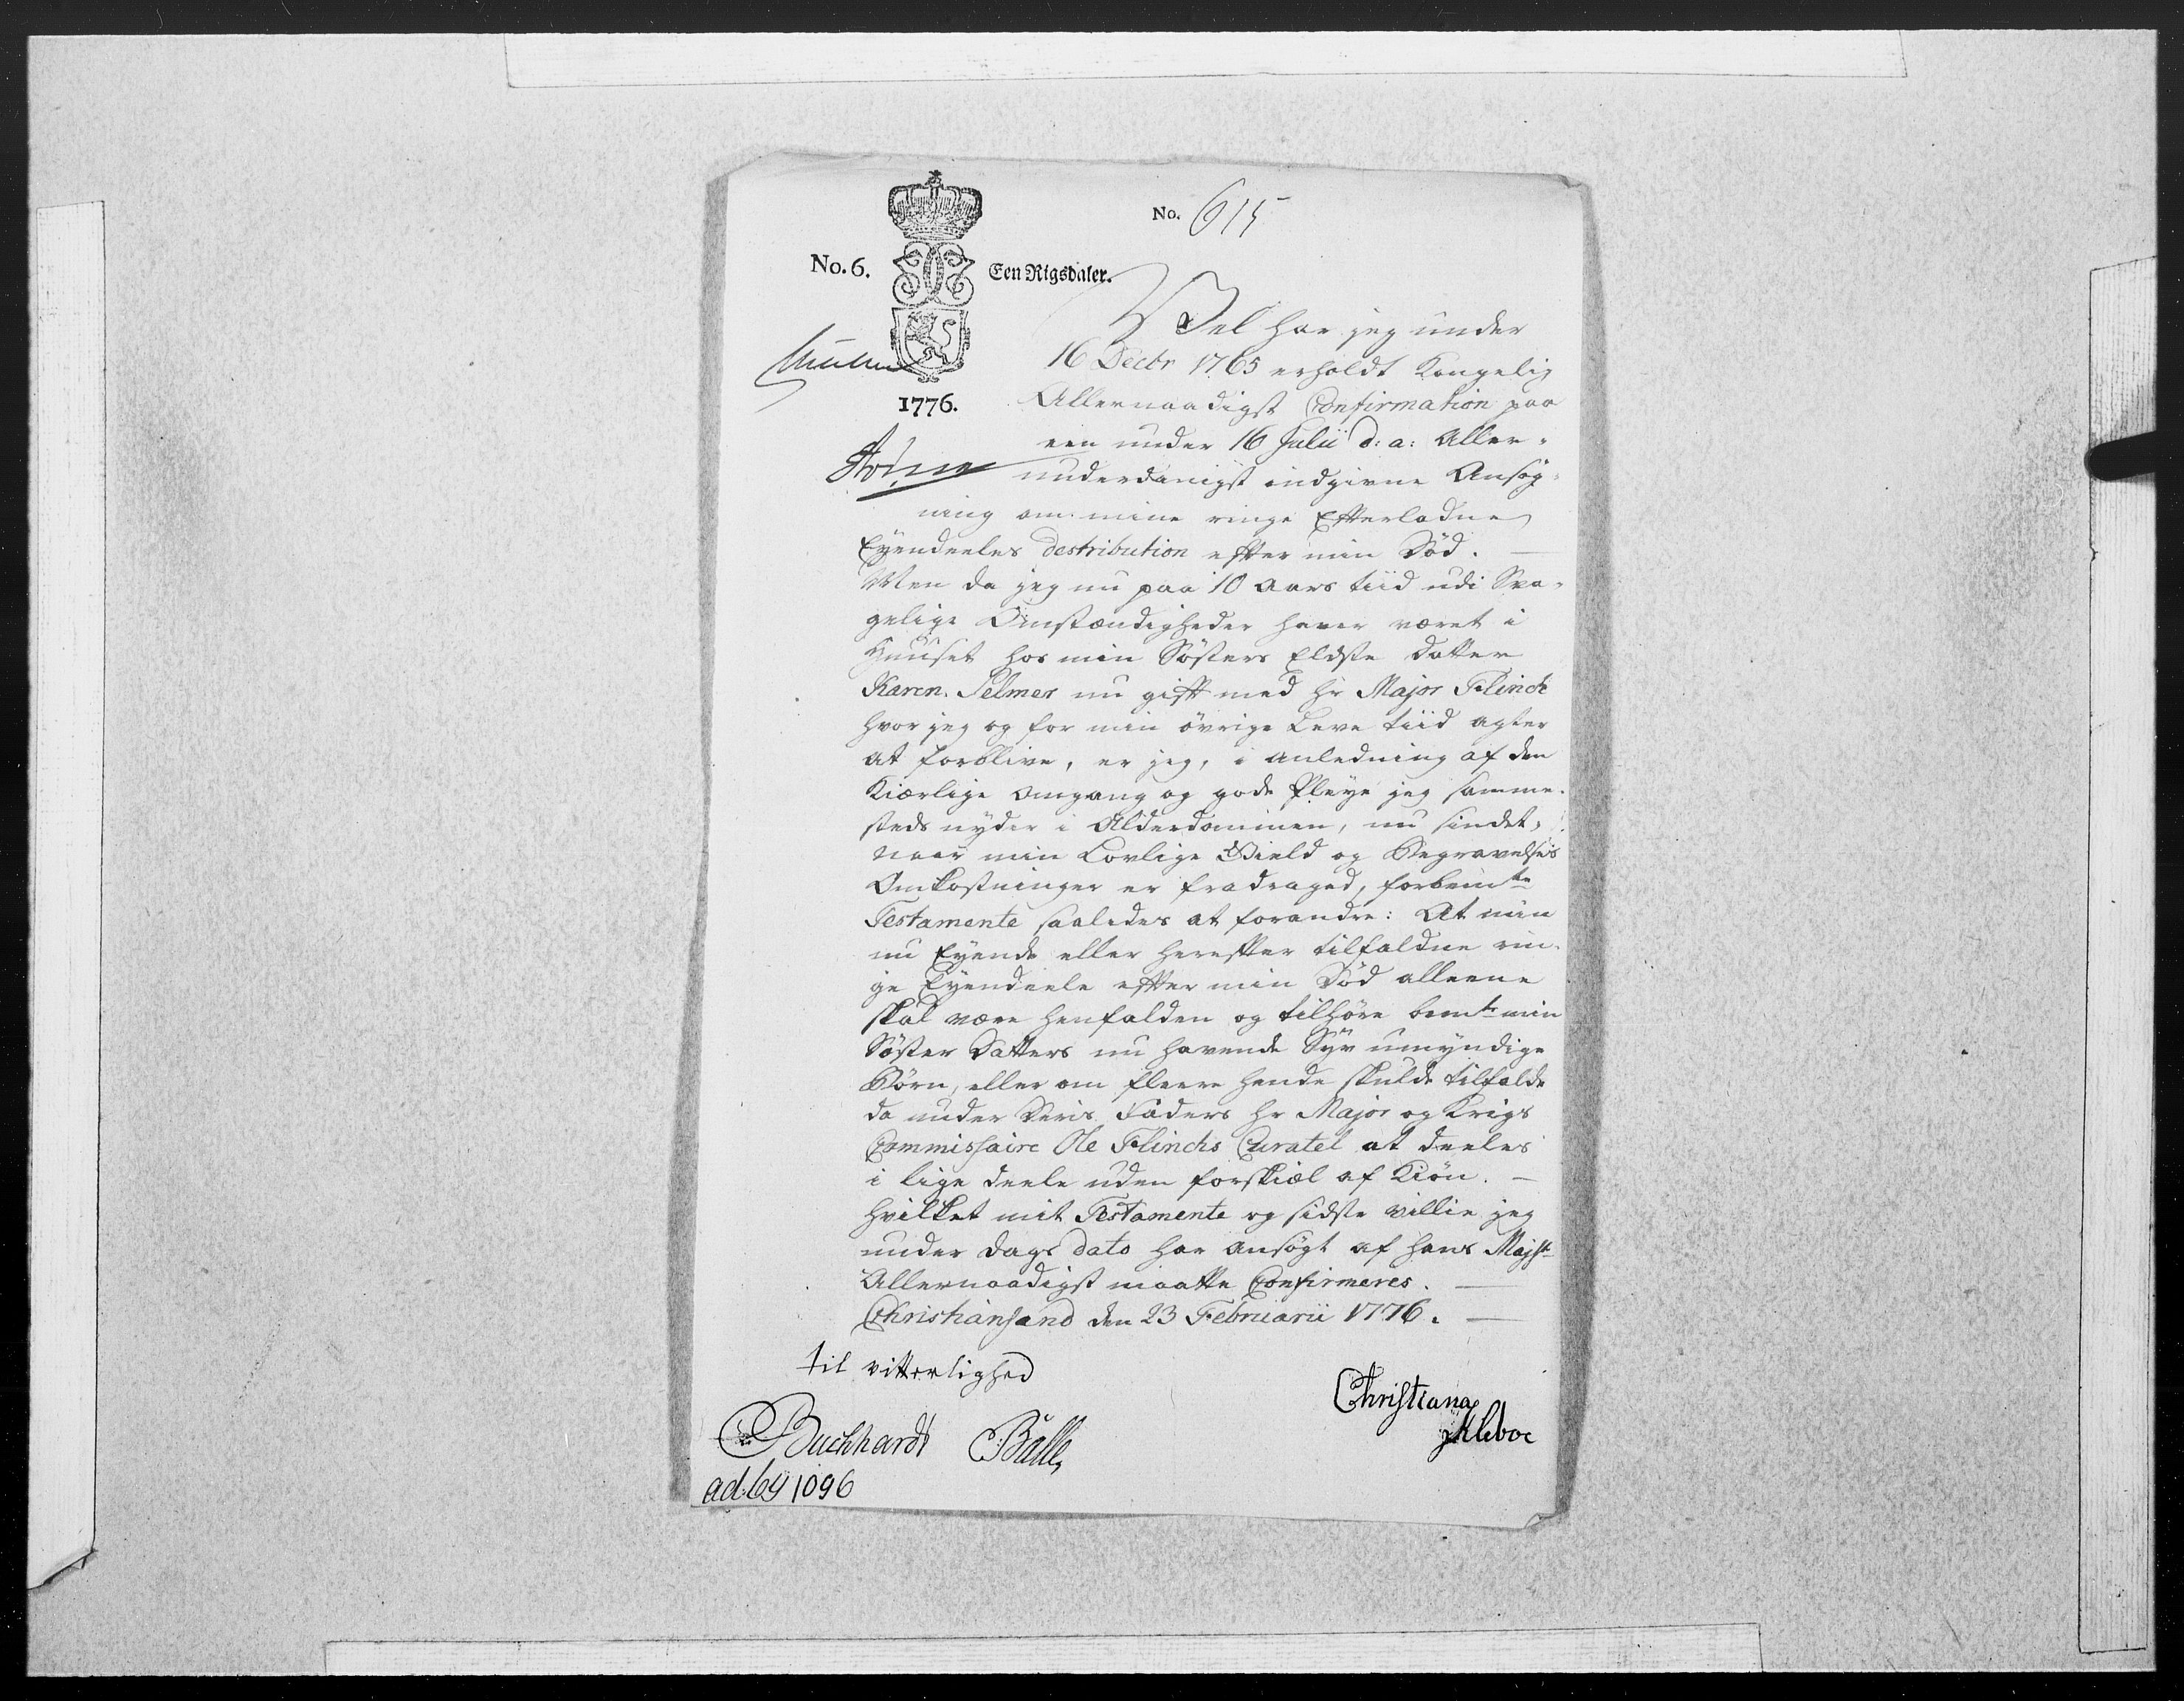 No. 615
No. 6. Een Rigsdaler.
1776.
Vel har jeg under
16 Decbr 1765 erholdt Kongelig
Allernaadigst Confirmation paa
een under 16 Julii d: a: Aller-
underdanigst indgivne Ansøg-
ning om mine ringe Efterladne
Eyendeeles destribution efter min Død.
Men da jeg nu paa 10 Aars tiid udi Sva-
gelige Omstændigheder haver været i
Huuset hos min Søsters Eldste Datter
Karen Selmer nu gift med hr Major Flinch
hvor jeg og for min øvrige Leve tiid agter
at forblive, er jeg, i anledning af den
Kiærlige Omgang og gode Pleye jeg samme-
steds nyder i Alderdommen, nu sindet,
naar min Lovlige Gield og Begravelses
Omkostninger er fradraged, forbemte
Testamente saaledes at forandre: At min
nu Eyende eller herefter tilfaldne rin-
ge Eyendeele efter min Død alleene
skal være henfalden og tilhøre bemte min
Søster Datters nu havende Syv umyndige
Børn, eller om fleere hende skulde tilfalde
da under Deris Faders hr Major og Krigs
Commissaire Ole Flinchs Curatel at deeles
i lige deele uden forskiæl af Kiøn.
hvilket mit Testamente og sidste villie jeg
under Dags dato har ansøgt af hans Majst
Allernaadigst maatte Confirmeres.
Christiansand den 23 Februarii 1776.
til vitterlighed
Christiana
Kleboe
Buchhardt Balle
ad. 1096